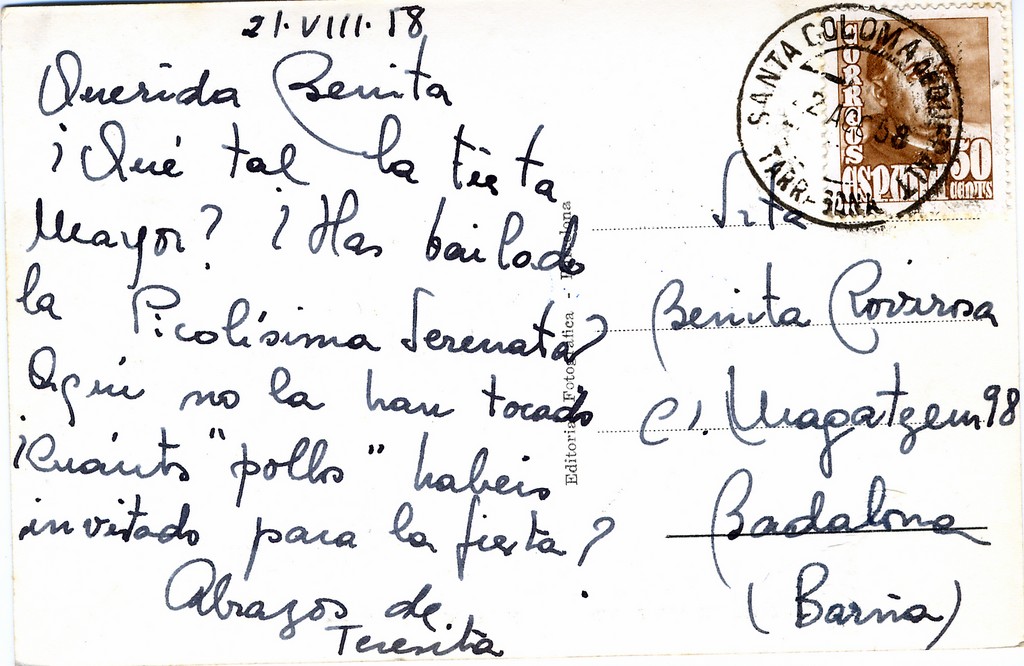 21·VIII·58
Querida Benita
¿Qué tal la fiesta
Mayor? ¿Has bailado
la Picolísima Serenata?
Aquí no la han tocado
¿Cuántos "pollos" habeis
invitado para la fiesta?
Abrazos de
Teresita
Editorial Fotográfica -
SANTA COLOMA DE QUERALT
TARRAGONA
CORREOS
ESPAÑA
50
CENTS
Srta
Benita Rovirosa
c/. Magatzem 98
Badalona
(Barna)